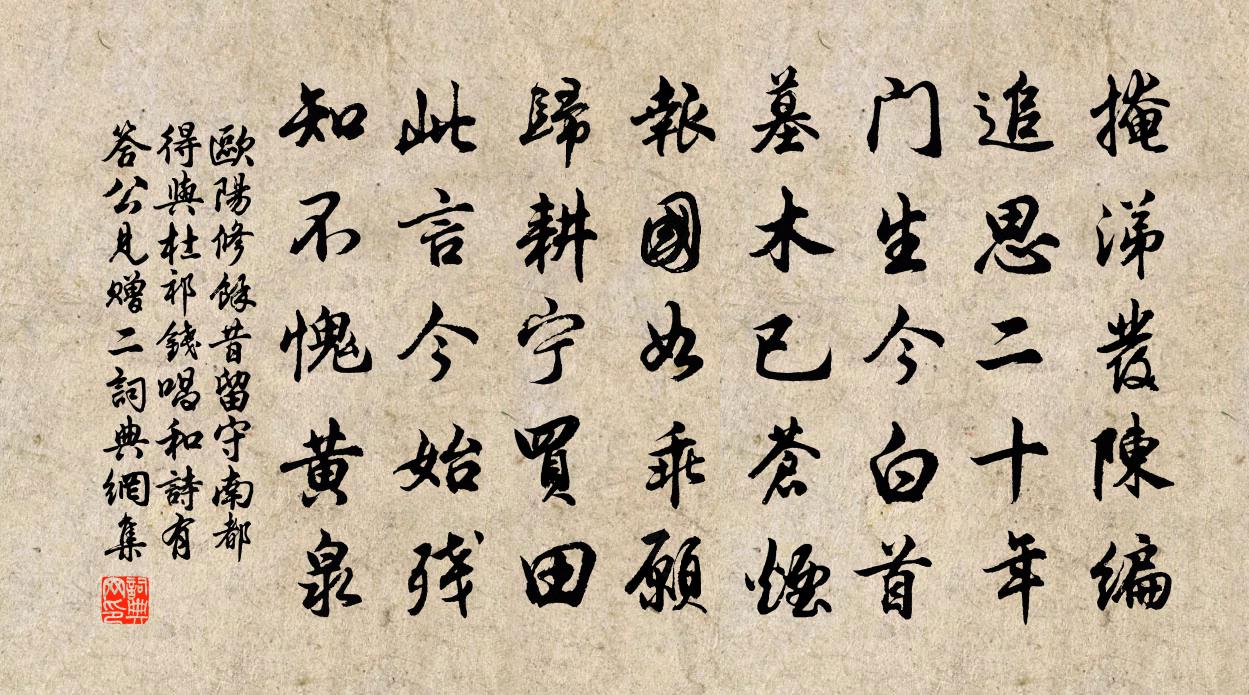 掩涕發陳編
追思二十年
门生今白首
墓木已蒼煙
報國如乖願
歸耕宁買田
此言今始残
知不愧黄泉
歐陽修餘昔留守南都
得與杜祁錢唱和詩有
答公見贈二詞典網集
詞典网印